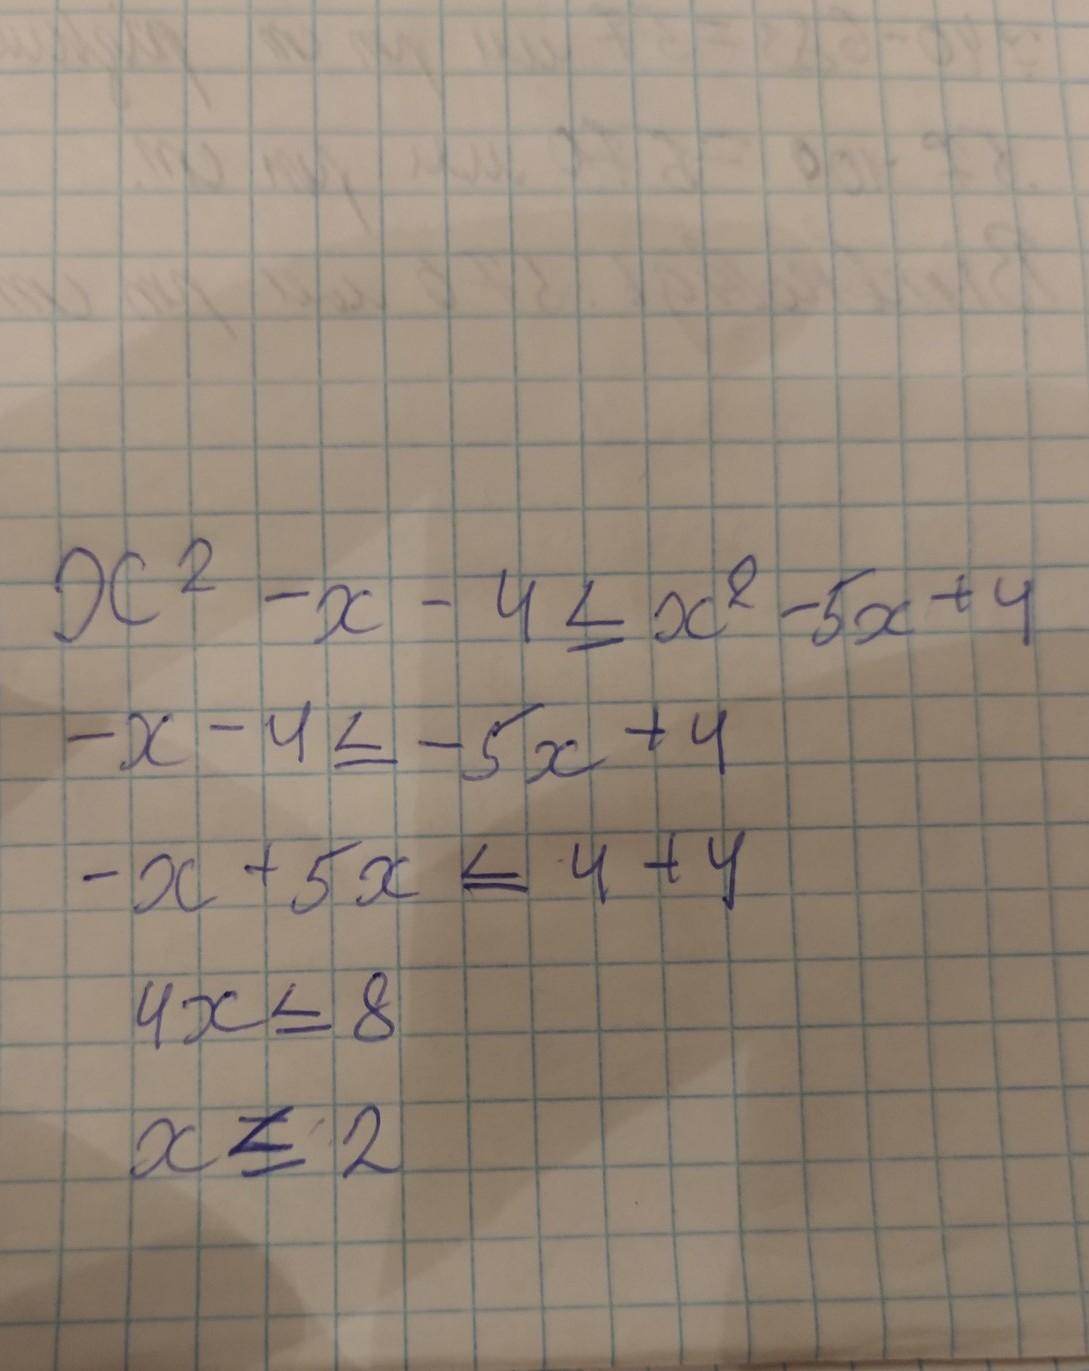 x² - x - 4 ≤ x² - 5x + 4
- x - 4 ≤ - 5x + 4
- x + 5x ≤ 4 + 4
4x ≤ 8
x ≤ 2